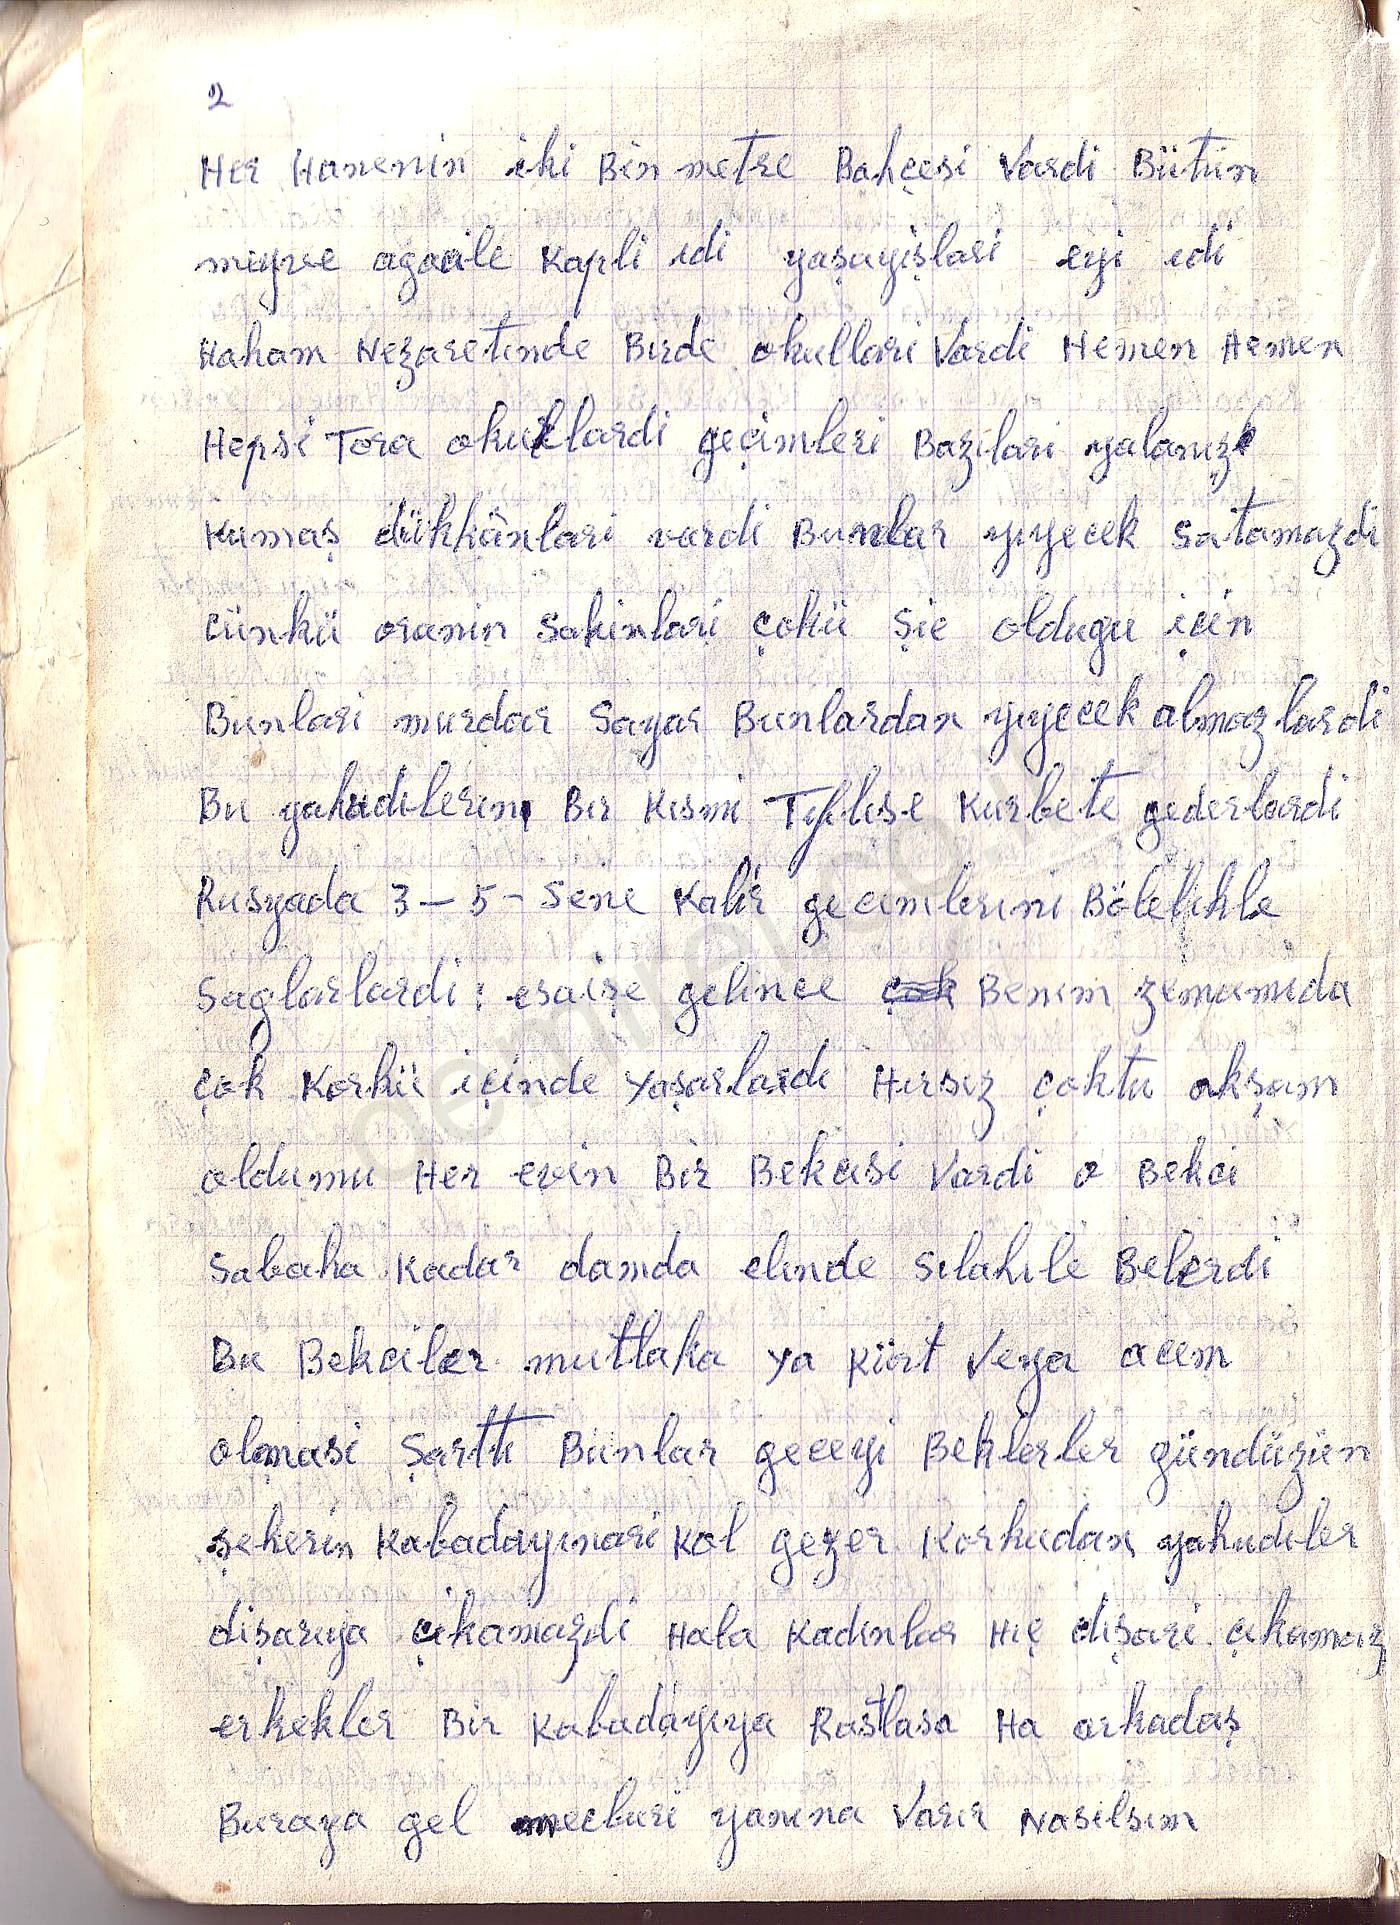 2
Her Hanenin iki Bin metre Bahçesi Vardi Bütün
meyve agacile Kapli idi yaşayişlari eyi idi
Haham Nezaretinde Birde okullari Vardi Hemen Hemen
Hepsi Tora okullardi geçimleri Bazilari yalanız
Kumaş dükkânlari vardi Bunlar yiyecek Satamazdi
cünkü oranin Sakinlari çokü Şie oldugu için
Bunlari murdar Sayar Bunlardan yiyecek almazlardi
Bu yahudilerin Bir Kismi Tiflise Kurbete gederlardi
Rusyada 3 – 5 – Sene Kalir geçimlerini Bölelikle
Saglarlardi: esaişe gelince Benim zemanimda
çok Korkü içinde Yaşarlardi Hirsiz çoktu akşam
oldumu Her evin Bir Bekcisi Vardi o Bekci
Sabaha Kadar damda elinde Silahile Belerdi
Bu Bekciler mutlaka Ya Kürt Veya acem
olmasi Şartti Bunlar geceyi Beklerler gündüzün
şeherin Kabadayınari Kol gezer Korkudan yahudiler
dişarıya çikamazdi Hala Kadınlar Hiç dişari çikamaz
erkekler Bir Kabadayıya Rastlasa Ha arkadaş
Buraya gel mecburi yanına Varır Nasilsın
demirel.co.il